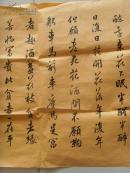 醉還来花下眠半醒半醉
日復日花開花落年復年
但願老死花酒間不願鞠
躬車馬前車塵馬足富
者趣酒盞花枝貧者緣
若將富貴比貧者一在平